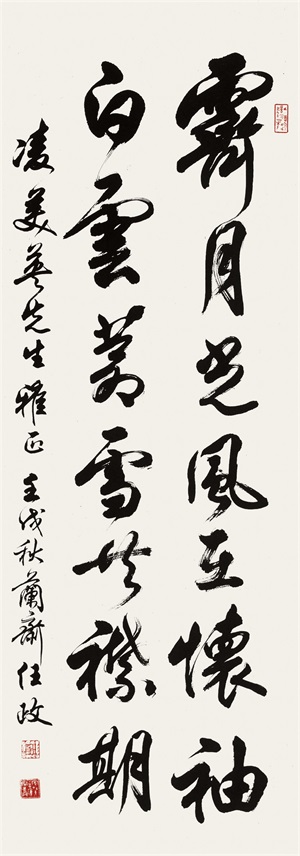 霽月光風在懷袖
白雲蒼雪共襟期
凌美英先生雅正 壬戌秋蘭齋任政